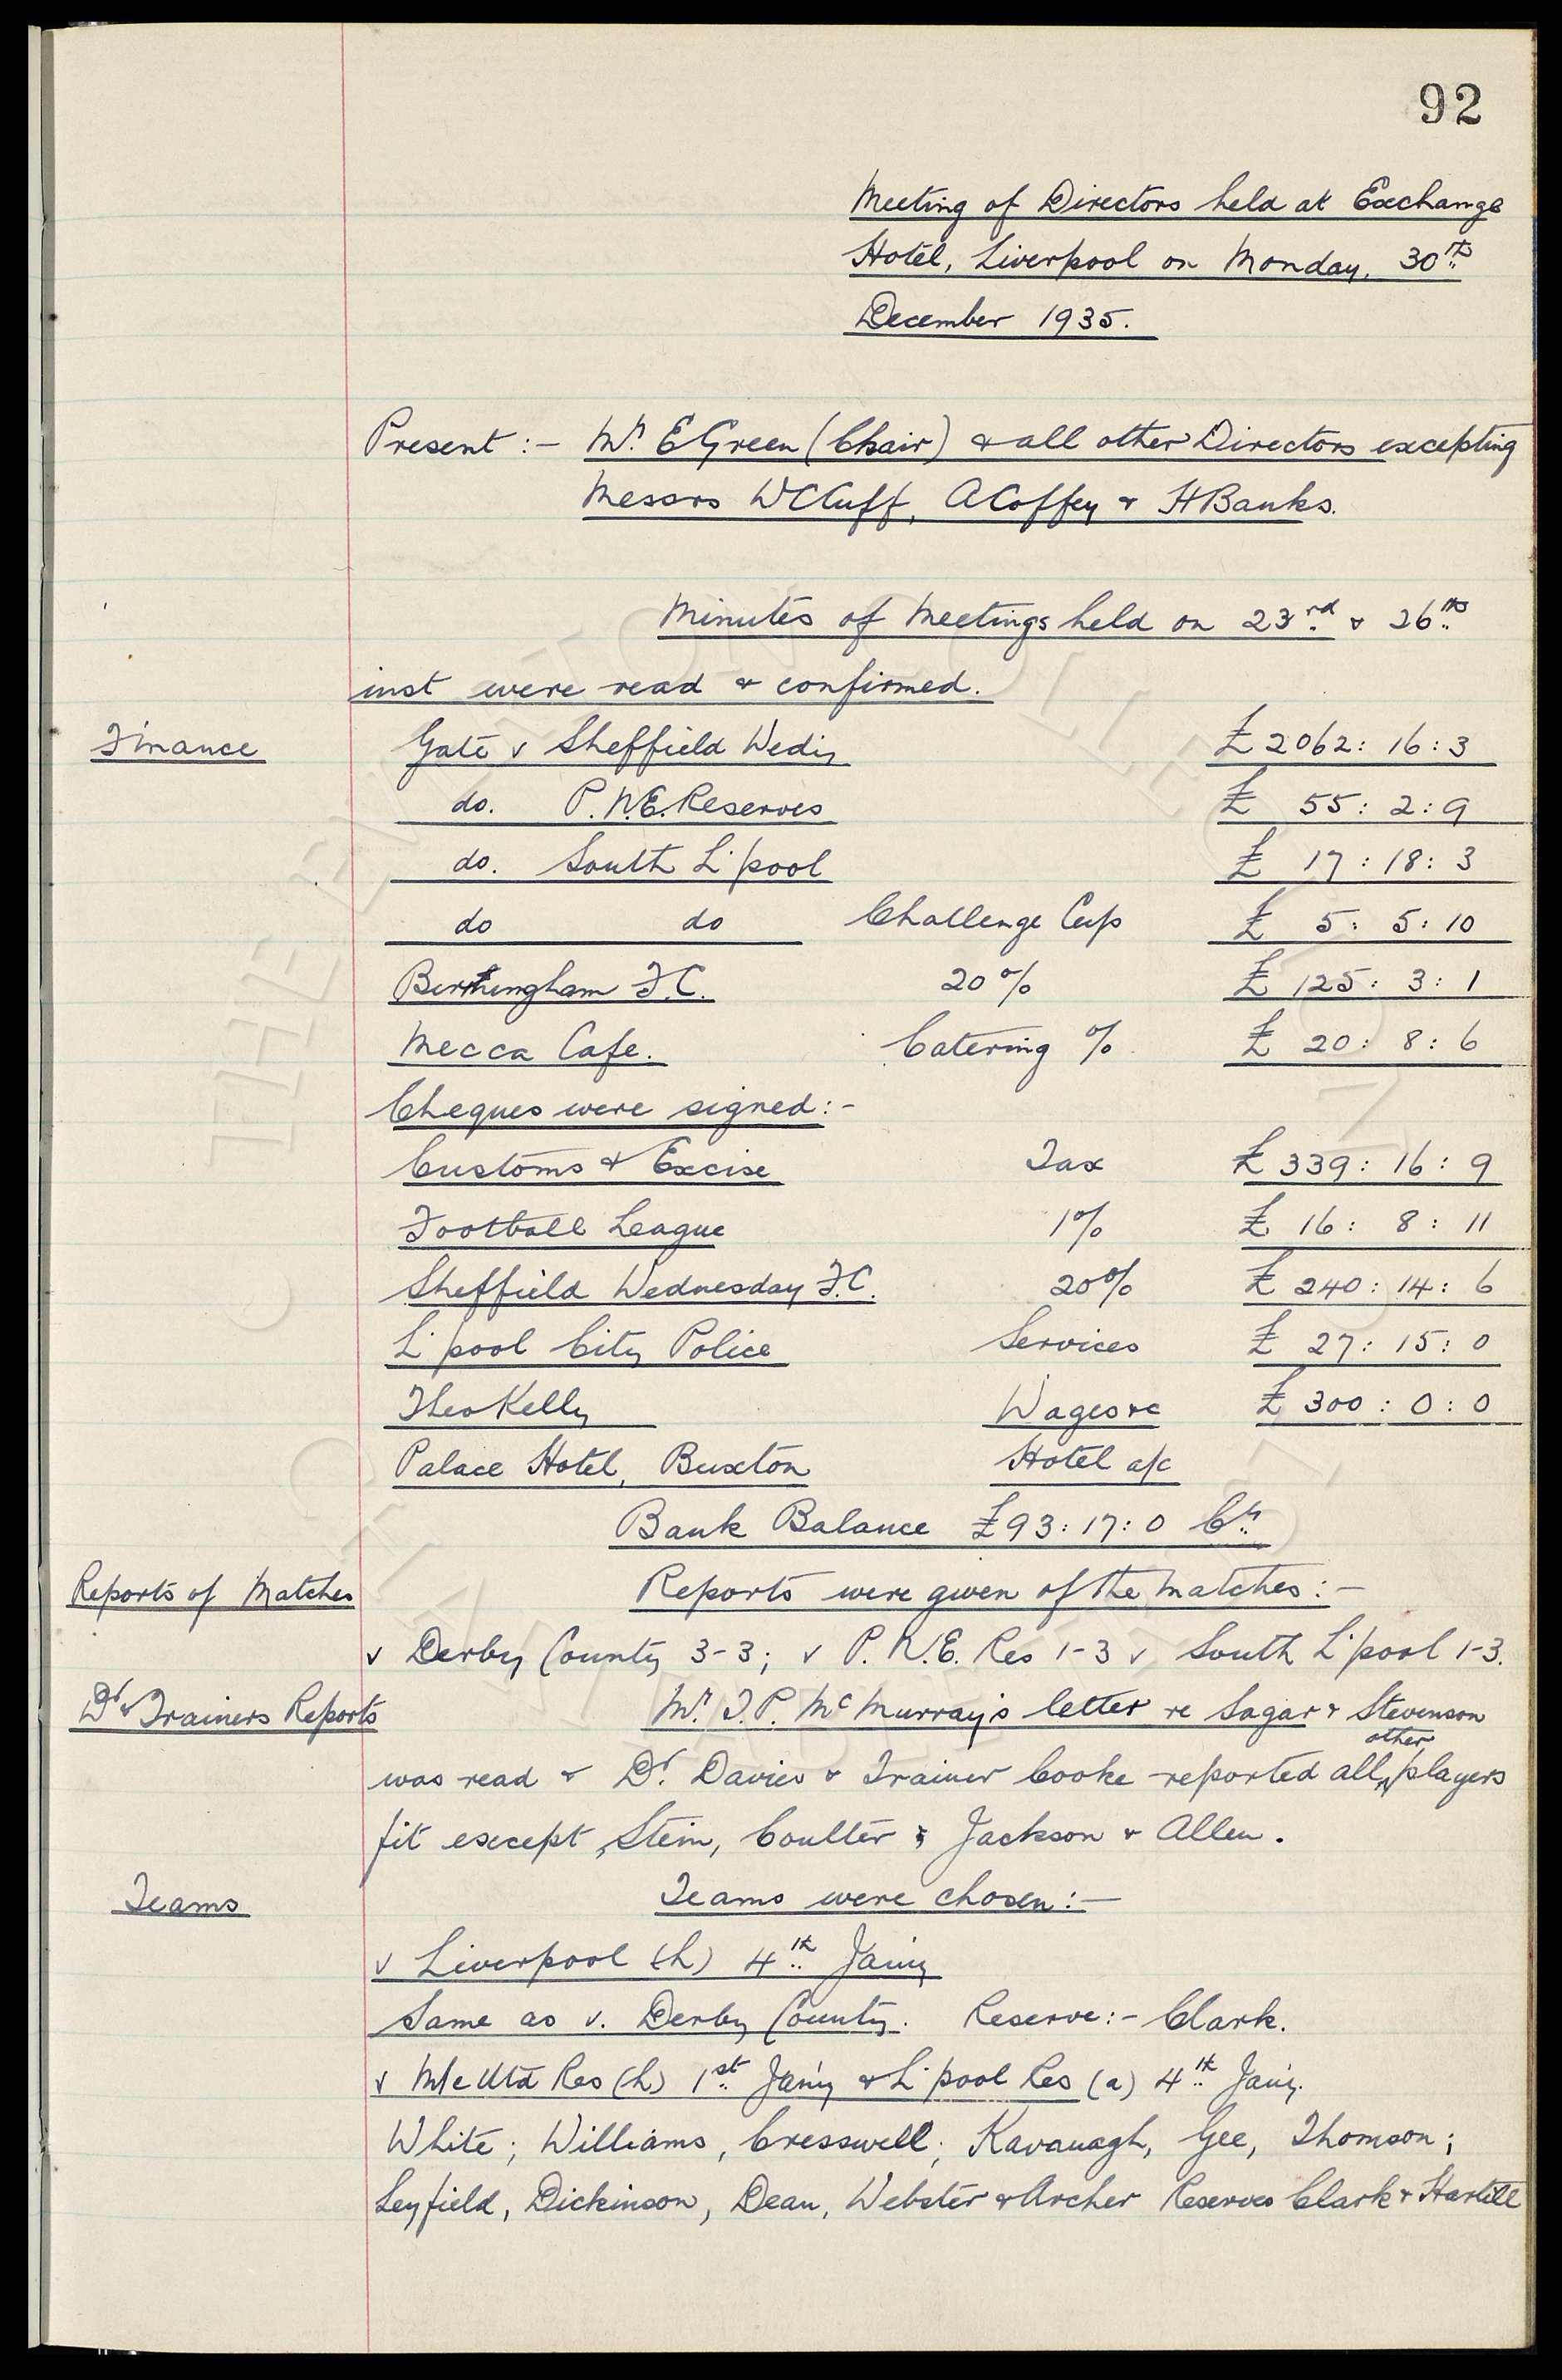 92
Meeting of Directors held at Exchange
Hotel, Liverpool on Monday, 30th
December 1935.
Present :- Mr. E Green (Chair) & all other Directors excepting
Messrs W C Cuff, A Coffey & H Banks.
Minutes of Meetings held on 23rd & 26th
inst were read & confirmed.
Finance
Gate v Sheffield Wedy £2062 : 16 : 3
do. P.N.E. Reserves £ 55 : 2 : 9
do. South L'pool £ 17 : 18 : 3
do do Challenge Cup £ 5 : 5 : 10
Birmingham F.C. 20% £ 125 : 3 : 1
Mecca Cafe. Catering % £ 20 : 8 : 6
Cheques were signed :-
Customs & Excise Tax £ 339 : 16 : 9
Football League 1% £ 16 : 8 : 11
Sheffield Wednesday F.C. 20% £ 240 : 14 : 6
L'pool City Police Services £ 27 : 15 : 0
Theo Kelly Wages &c £ 300 : 0 : 0
Palace Hotel, Buxton Hotel a/c
Bank Balance £93 : 17 : 0 Cr.
Reports of Matches Reports were given of the matches :-
v Derby County 3-3; v P.N.E. Res 1-3 v South L'pool 1-3.
Dr & Trainers Reports Mr. T.P. McMurray's letter re Sagar & Stevenson
was read & Dr. Davies & Trainer Cooke reported all other players
fit except Stein, Coulter, Jackson & Allen.
Teams Teams were chosen :-
v Liverpool (h) 4th Jan'y
Same as v. Derby County. Reserve :- Clark.
v M/c Utd Res (h) 1st Jan'y & L'pool Res (a) 4th Jan'y.
White; Williams, Cresswell; Kavanagh, Gee, Thomson;
Leyfield, Dickinson, Dean, Webster & Archer Reserves Clark & Hartill
THE EVERTON COLLECTION